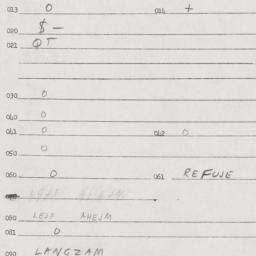 013 0 014 +
020 $ -
021 QT
030 0
040 0
041 0 042 0
050 0
060 0 061 REFUSE
080 LEJF AHEJM
081 0
090 LANGZAM